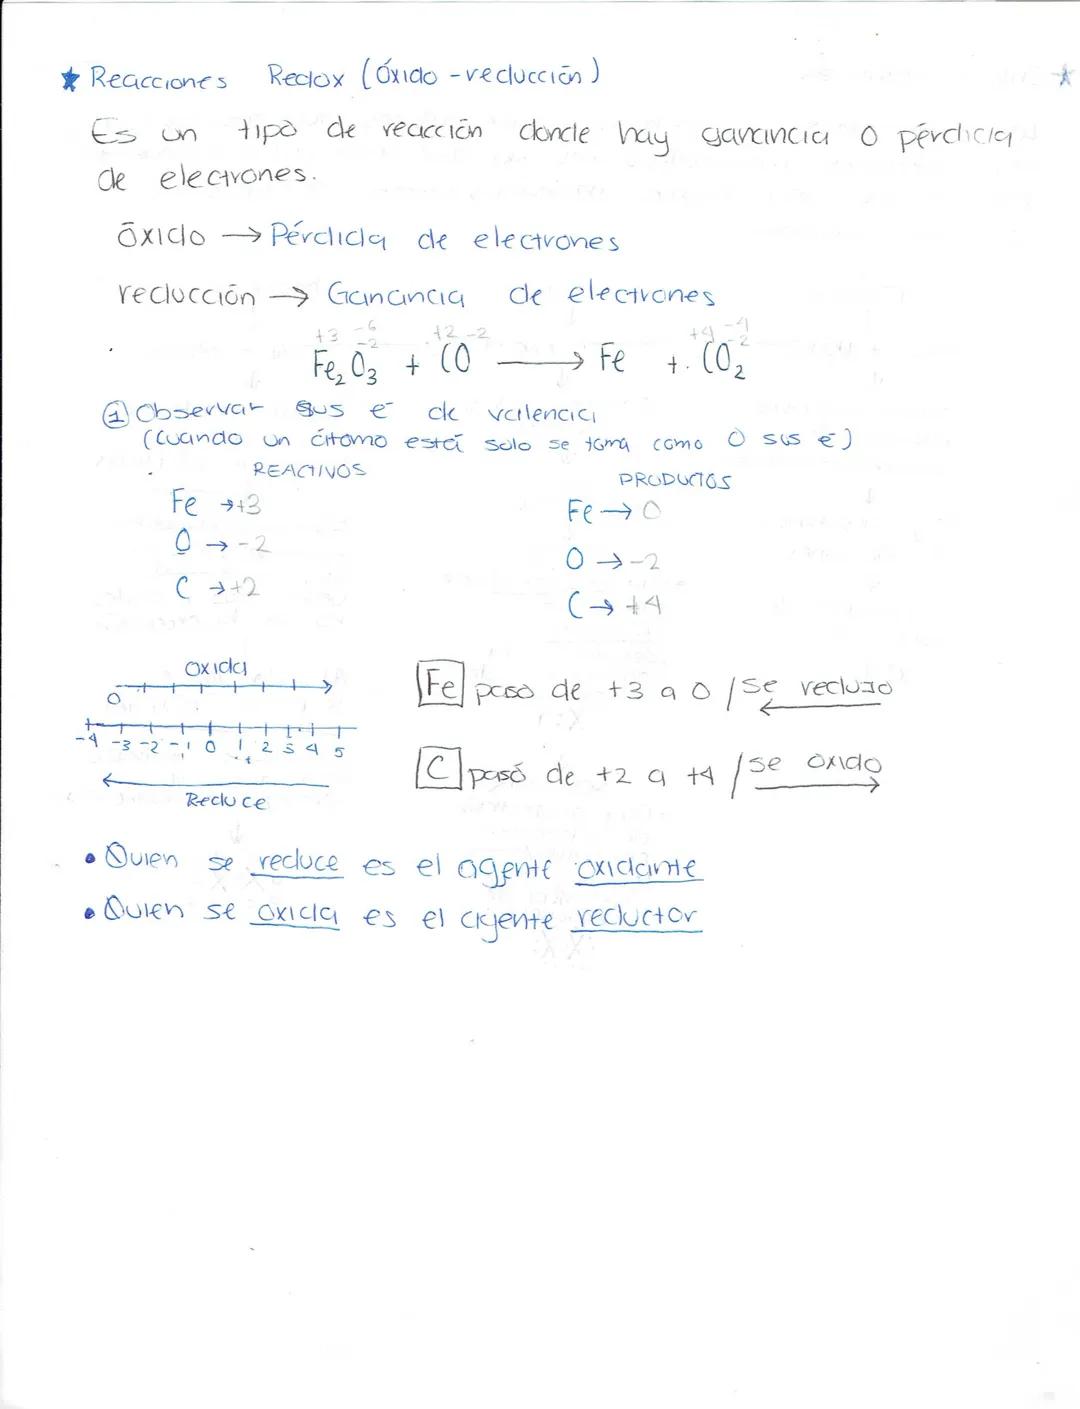 ★ Reacciones Redox (óxido - reducción)
Es un tipo de reacción donde hay ganancia o pérdida
de electrones.
óxido → Pérdida de electrones
reducción → Ganancia de electrones
+3 -6 +2 -2 +4 -4
-2 -2
Fe₂O₃ + CO → Fe + CO₂
① Observar sus e⁻ de valencia
(Cuando un átomo está solo se toma como 0 sus e⁻)
REACTIVOS PRODUCTOS
Fe → +3 Fe → 0
O → -2 O → -2
C → +2 C → +4
oxida
0
-4 -3 -2 -1 0 1 2 3 4 5
Reduce
Fe paso de +3 a 0 / se redujo
C pasó de +2 a +4 / se oxido
• Quien se reduce es el agente oxidante
• Quien se oxida es el agente reductor